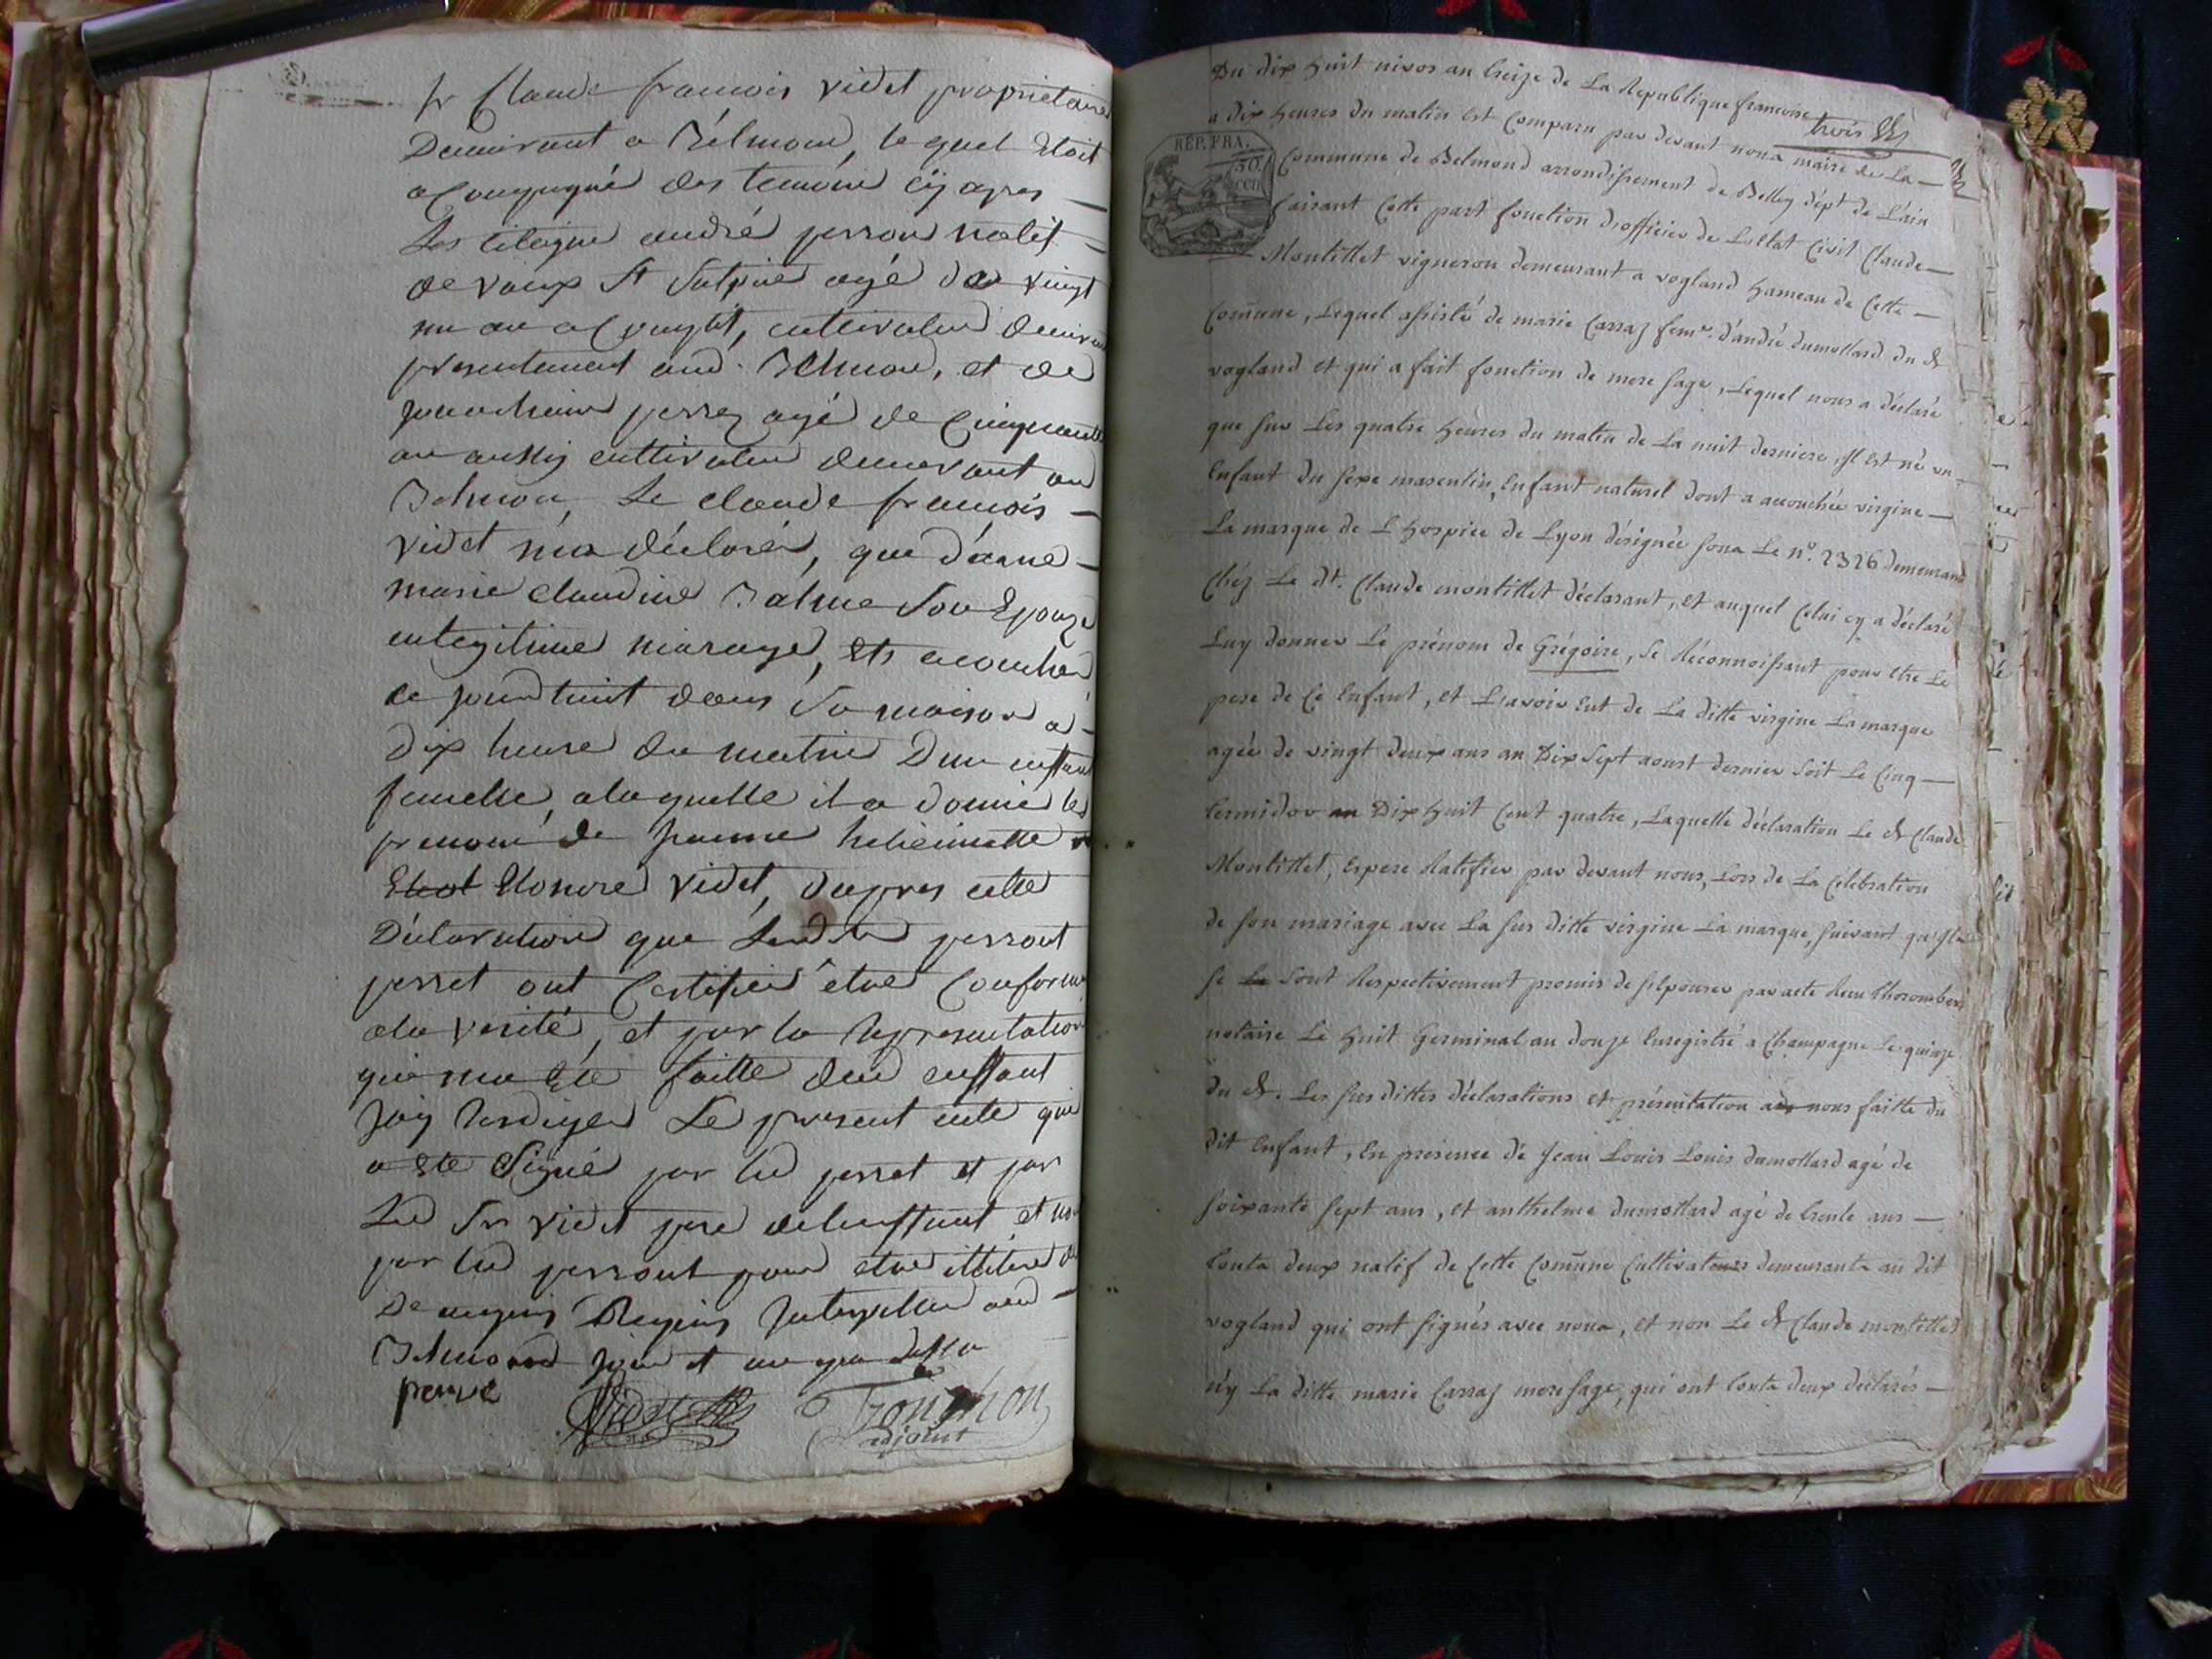 sr Claude francois videt proprietaire
Demeurant a Belmond, lequel Etoit
acompagné des temoins cy apres —
Les citoyens andré perrou natif —
de vaux St Sulpice agé de vingt
un an acomplit, cultivateur
presentement aud. Belmond, et de
perret agé de Cinquante
an aussy cultivateur demeurant au
Belmon, Le claude francois —
videt m'a déclaré, que dame —
marie claudine Balme Son Epouze
en legitime mariage, Et acouchee
ce jourd'huit dans Sa maison a —
Dix heure du matin D'un enffant
femelle, a laquelle il a donné les
prenom de Jeanne
Elonore videt, d'apres cette
Déclaration que perrout
perret ont Certifié être Conforme
a la verité, et par la representation
qui ma Eté faitte dud enffant
J'ay Rediger Le present acte que
a Ete Signé par led perret et par
Led Sr videt pere de l'enffant, et non
par led perrout pour etre illitere de
De ce aud —
Belmond jour et an que dessu
perret
Videt Bonthon
adjoint
Du dix huit nivos an treize de La Republique francoise
trois
a dix heures du matin Est Comparu par devant nous maire de La —
RÉP. FRA.
50.
cen
Commune de Belmond arrondissement de Belley dépt de L'ain
faisant Cette part fonction d'officier de L'Etat Civil Claude —
Montillet vigneron demeurant a vogland hameau de Cette —
Comune, Lequel assisté de marie Carraz feme. d'andré dumollard du dt
vogland et qui a fait fonction de mere sage, Lequel nous a déclaré
que sur Les quatre heures du matin de La nuit derniere, Il Est né un
Enfant du sexe masculin, Enfant naturel dont a accouchée virgine —
La marque de L'hospice de Lyon désignée sous Le n°. 2326 demeurand
Chéz Le dt. Claude montillet déclarant, et auquel Celui cy a déclaré
Luy donner Le prénom de Grégoire, se Réconnoissant pour Etre Le
pere de Ce Enfant, et L'avoir Eut de La ditte virgine La marque
agée de vingt deux ans au Dix Sept aoust dernier Soit Le Cinq —
termidor an Dix huit Cent quatre, Laquelle déclaration Le dt Claude
Montillet, Espere Ratifier par devant nous, Lors de La Célébration
de son mariage avec La sus ditte virgine La marque, suivant qu'Ils
se Sont Respectivement promis de s'Epouser par acte Recu
notaire Le huit Germinal an douze Enregistré a Champagne Le quinze
du dt. Les sus dittes déclarations et présentation a nous faitte du
dit Enfant, En présence de Jean Louis Louis dumollard agé de
soixante sept ans, et anthelme dumollard agé de trente ans —
touts deux natif de Cette Comune Cultivateurs demeurants au dit
vogland qui ont signés avec nous, et non Le dt Claude montillet
n'y La ditte marie Carraz mere sage, qui ont touts deux declarés —